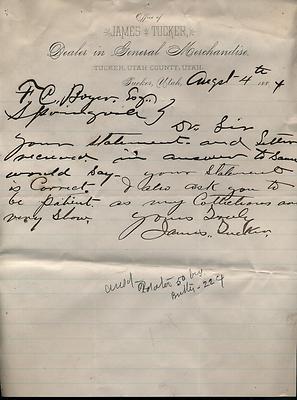 Office of
JAMES TUCKER,
Dealer in General Merchandise.
TUCKER, UTAH COUNTY, UTAH.
Tucker, Utah, Augst 4th 188
F. C. Boyer, Esq.
Springville
Dr Sir
your statement and letter
recieved in answer to same
would say - your statement
is Correct. I also ask you to
be patient as my Collections are
very slow.
yours Truly
James Tucker
Credit
Potatoes 50 bu
Butter - 22 4